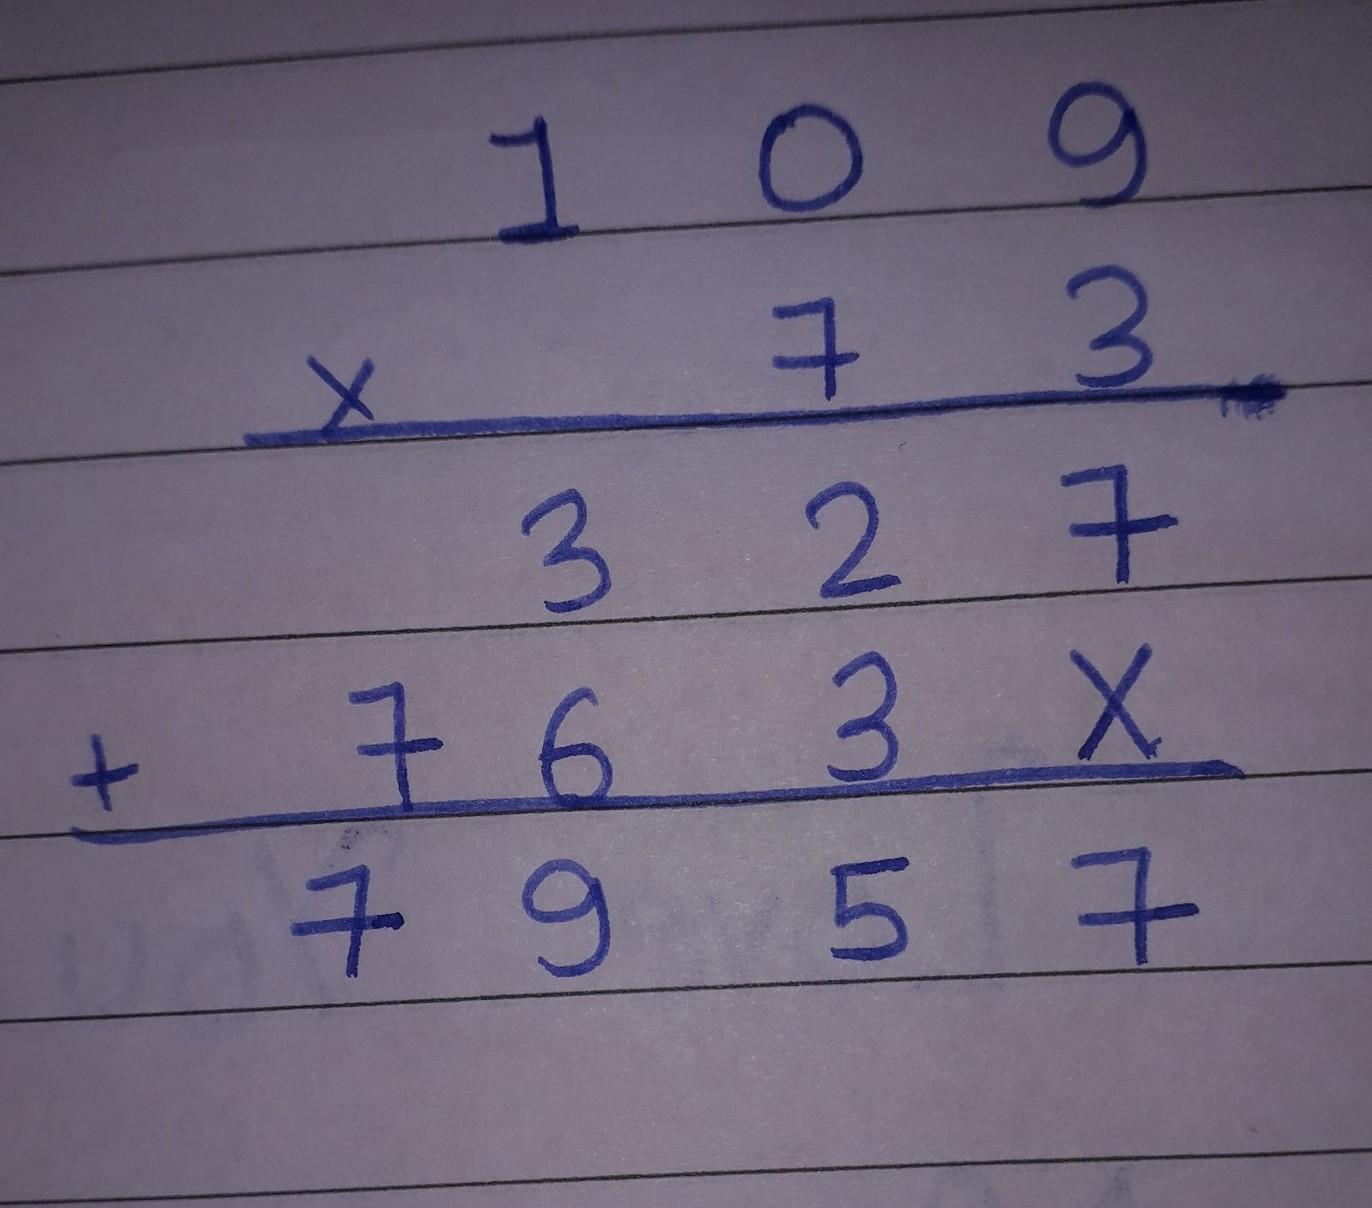 1 0 9
x 7 3
3 2 7
+ 7 6 3 X
7 9 5 7